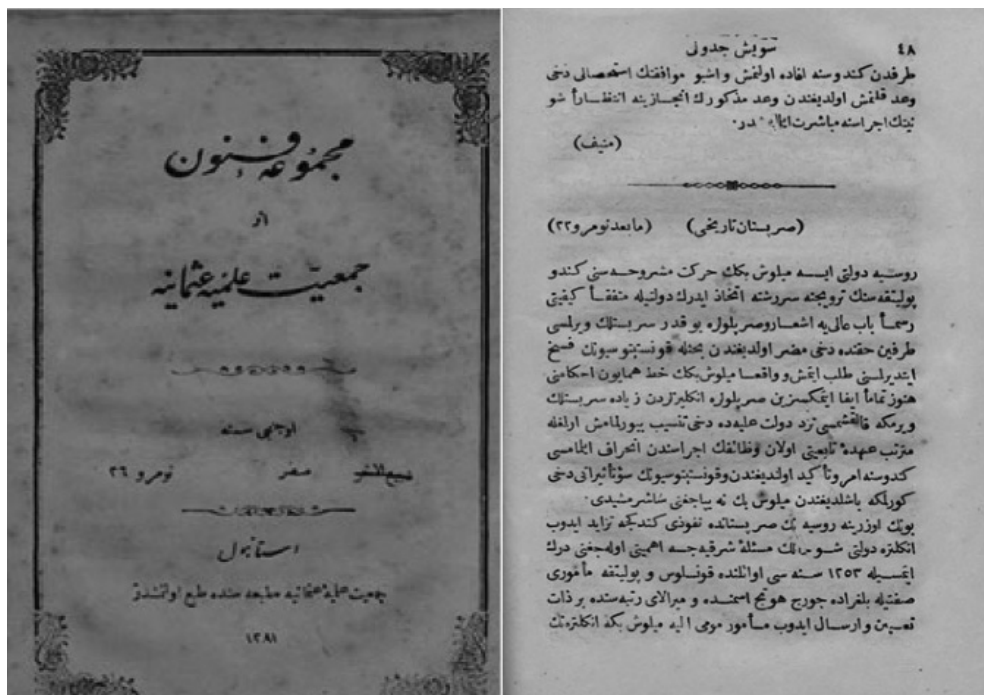 مجموعۀ فنون
از
جمعیت علمیۀ عثمانیه
اوچنجی سنه
صفر
نومرو ٢٦
استانبول
جمعیت علمیۀ عثمانیه مطبعه سنده طبع اولنمشدر
١٢٨١
٤٨
سویش جدولی
طرفدن کندوسنه افاده اولنمش و اشبو موافقتك استحصالی دخی
وعد قلنمش اولدیغندن وعد مذکورك انجازینه انتظاراً شو
نیتك اجراسنه مباشرت در.
(منیف)
(صربستان تاریخی) (مابعد نومرو ٢٢)
روسیه دولتی ایسه میلوش بكك حرکت مشروحه سنی کندو
پولیتقه سنك ترویجنه سررشته اتخاذ ایدرك دولتیله متفقاً کیفیتی
رسماً باب عالی یه اشعار و صربلولره بو قدر سربستلك ویرلمسی
طرفین حقنده دخی مضر اولدیغندن بحثله قونستیتوسیونك فسخ
ایتدیرلسنی طلب ایتمش و واقعا میلوش بكك خط همایون احکامنی
هنوز تماماً ایفا ایتمکسزین صربلولره انکلیزلردن زیاده سربستلك
ویرمکه قالقشمسی نزد دولت علیه ده دخی تنسیب بیورلمامش اولمغله
مترتب عهدۀ تابعیتی اولان وظائفك اجراسندن انحراف ایتمامسی
کندوسنه امر و تأکید اولندیغندن و قونستیتوسیونك سوء تأثیراتی دخی
کورلمکه باشلدیغندن میلوش بك نه یپاجغنی شاشرمشیدی.
بونك اوزرینه روسیه نك صربستانده نفوذی کندکجه تزاید ایدوب
انکلتره دولتی شو حالك مسئلۀ شرقیه جه اهمیتی اوله جغنی درك
ایتمسیله ١٢٥٣ سنه سی اوائلنده قونسلوس و پولیتقه مأموری
صفتیله بلغراده جورج هوجج اسمنده و میرالای رتبه سنده بر ذات
تعیین و ارسال ایدوب مأمور مومی الیه میلوش بكه انکلتره نك